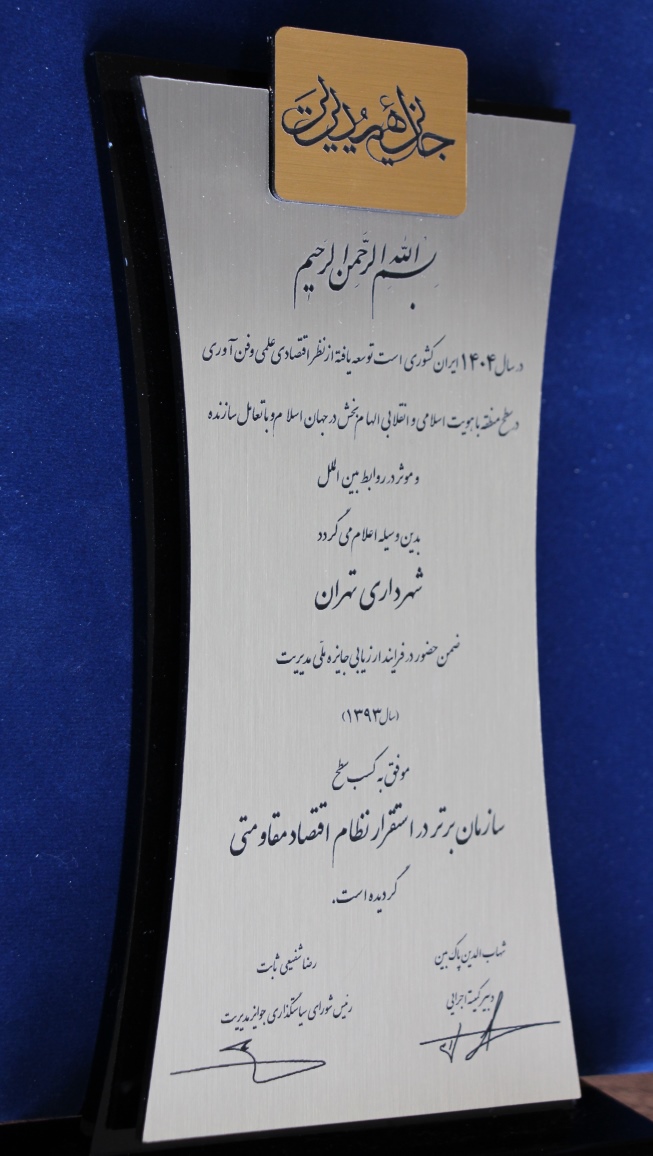 جایزه مدیریت
بسم الله الرحمن الرحیم
در سال ۱۴۰۴ ایران کشوری است توسعه یافته از نظر اقتصادی علمی و فن آوری
در سطح منطقه با هویت اسلامی و انقلابی الهام بخش در جهان اسلام و با تعامل سازنده
و موثر در روابط بین الملل
بدین وسیله اعلام می گردد
شهرداری تهران
ضمن حضور در فرایند ارزیابی جایزه ملی مدیریت
(سال ۱۳۹۳)
موفق به کسب سطح
سازمان برتر در استقرار نظام اقتصاد مقاومتی
گردیده است.
شهاب الدین پاک بین
دبیر کمیته اجرایی
رضا شفیعی ثابت
رئیس شورای سیاستگذاری جوایز مدیریت